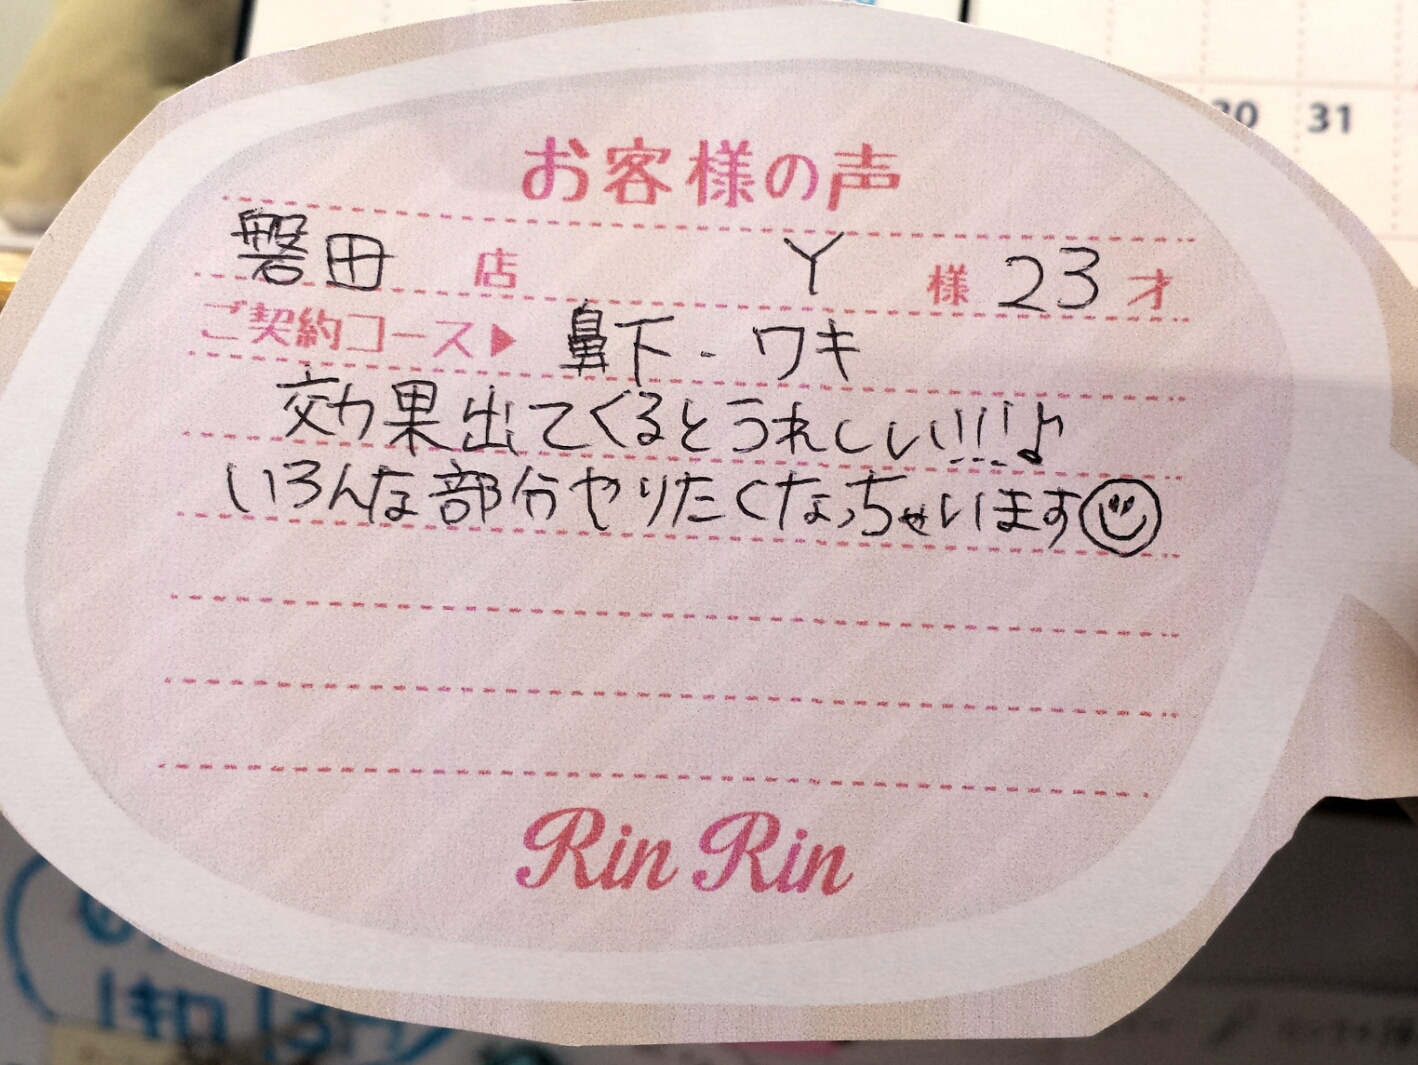 30 31
お客様の声
磐田 店 Y 様 23 才
ご契約コース▶ 鼻下 - ワキ
効果出てくるとうれしい!!!♪
いろんな部分やりたくなっちゃいます☺
Rin Rin